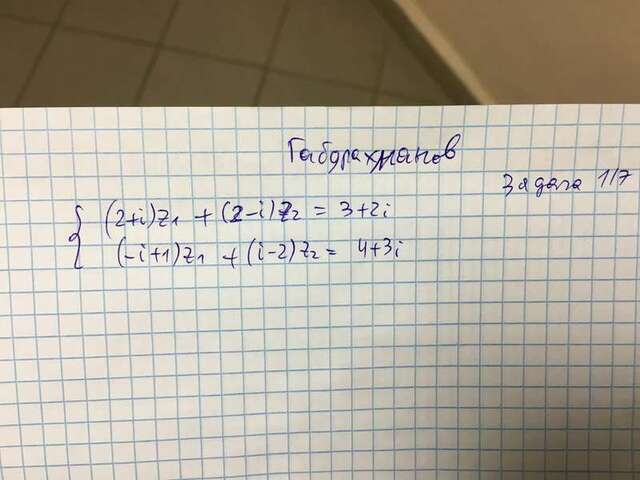 Габдрахманов Задача 117
(2+i)z₁ + (2-i)z₂ = 3+2i
(-i+1)z₁ + (i-2)z₂ = 4+3i